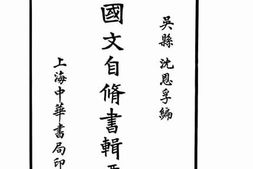 吳縣沈恩孚編
國文自脩書輯
上海中華書局印